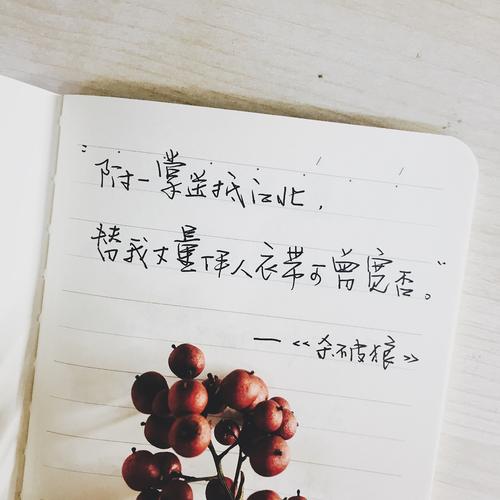 "附一掌送抵江北，
替我丈量伊人衣带可曾宽否。"
—《杀破狼》